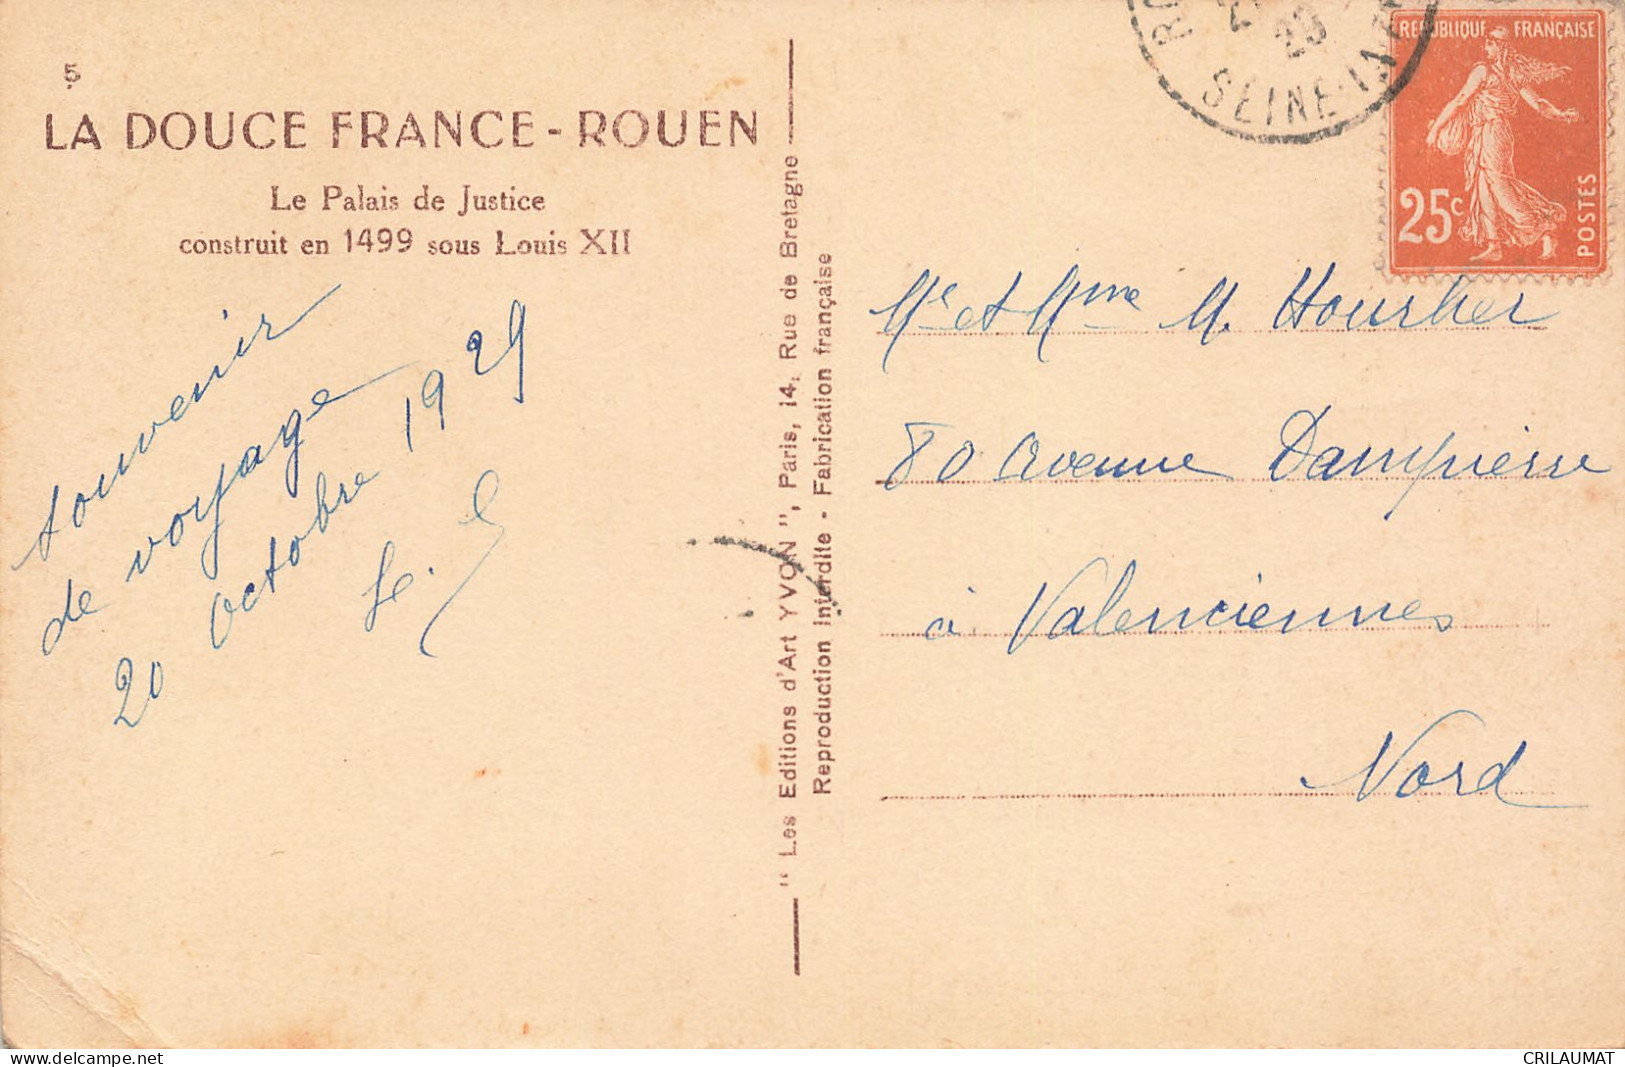 5
LA DOUCE FRANCE - ROUEN
Le Palais de Justice
construit en 1499 sous Louis XII
souvenir
de voyage
20 octobre 1929
"Les Editions d'Art YVON", Paris, 14, Rue de Bretagne
Reproduction Interdite - Fabrication française
SEINE
REPUBLIQUE FRANÇAISE
25c
POSTES
Mr et Mme M.
80 avenue Dampierre
à Valenciennes
Nord
CRILAUMAT